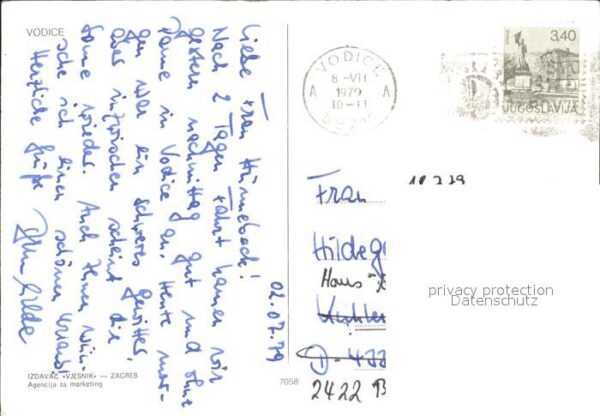 VODICE
02.07.79
Liebe Frau Hünnebeck!
Nach 2 Tagen Fahrt kamen wir
gestern nachmittag gut und ohne
Panne in Vodice an. Heute mor-
gen war ein schweres Gewitter,
aber inzwischen scheint die
Sonne wieder. Auch Ihnen wün-
sche ich einen schönen Urlaub!
Herzliche Grüße
IZDAVAČ «VJESNIK» — ZAGREB
Agencija za marketing
7058
VODICE
8-VII
1979
10-11
A A
3,40
JUGOSLAVIJA
Frau
Hildeg
Haus
D-433
2422 B
privacy protection
Datenschutz